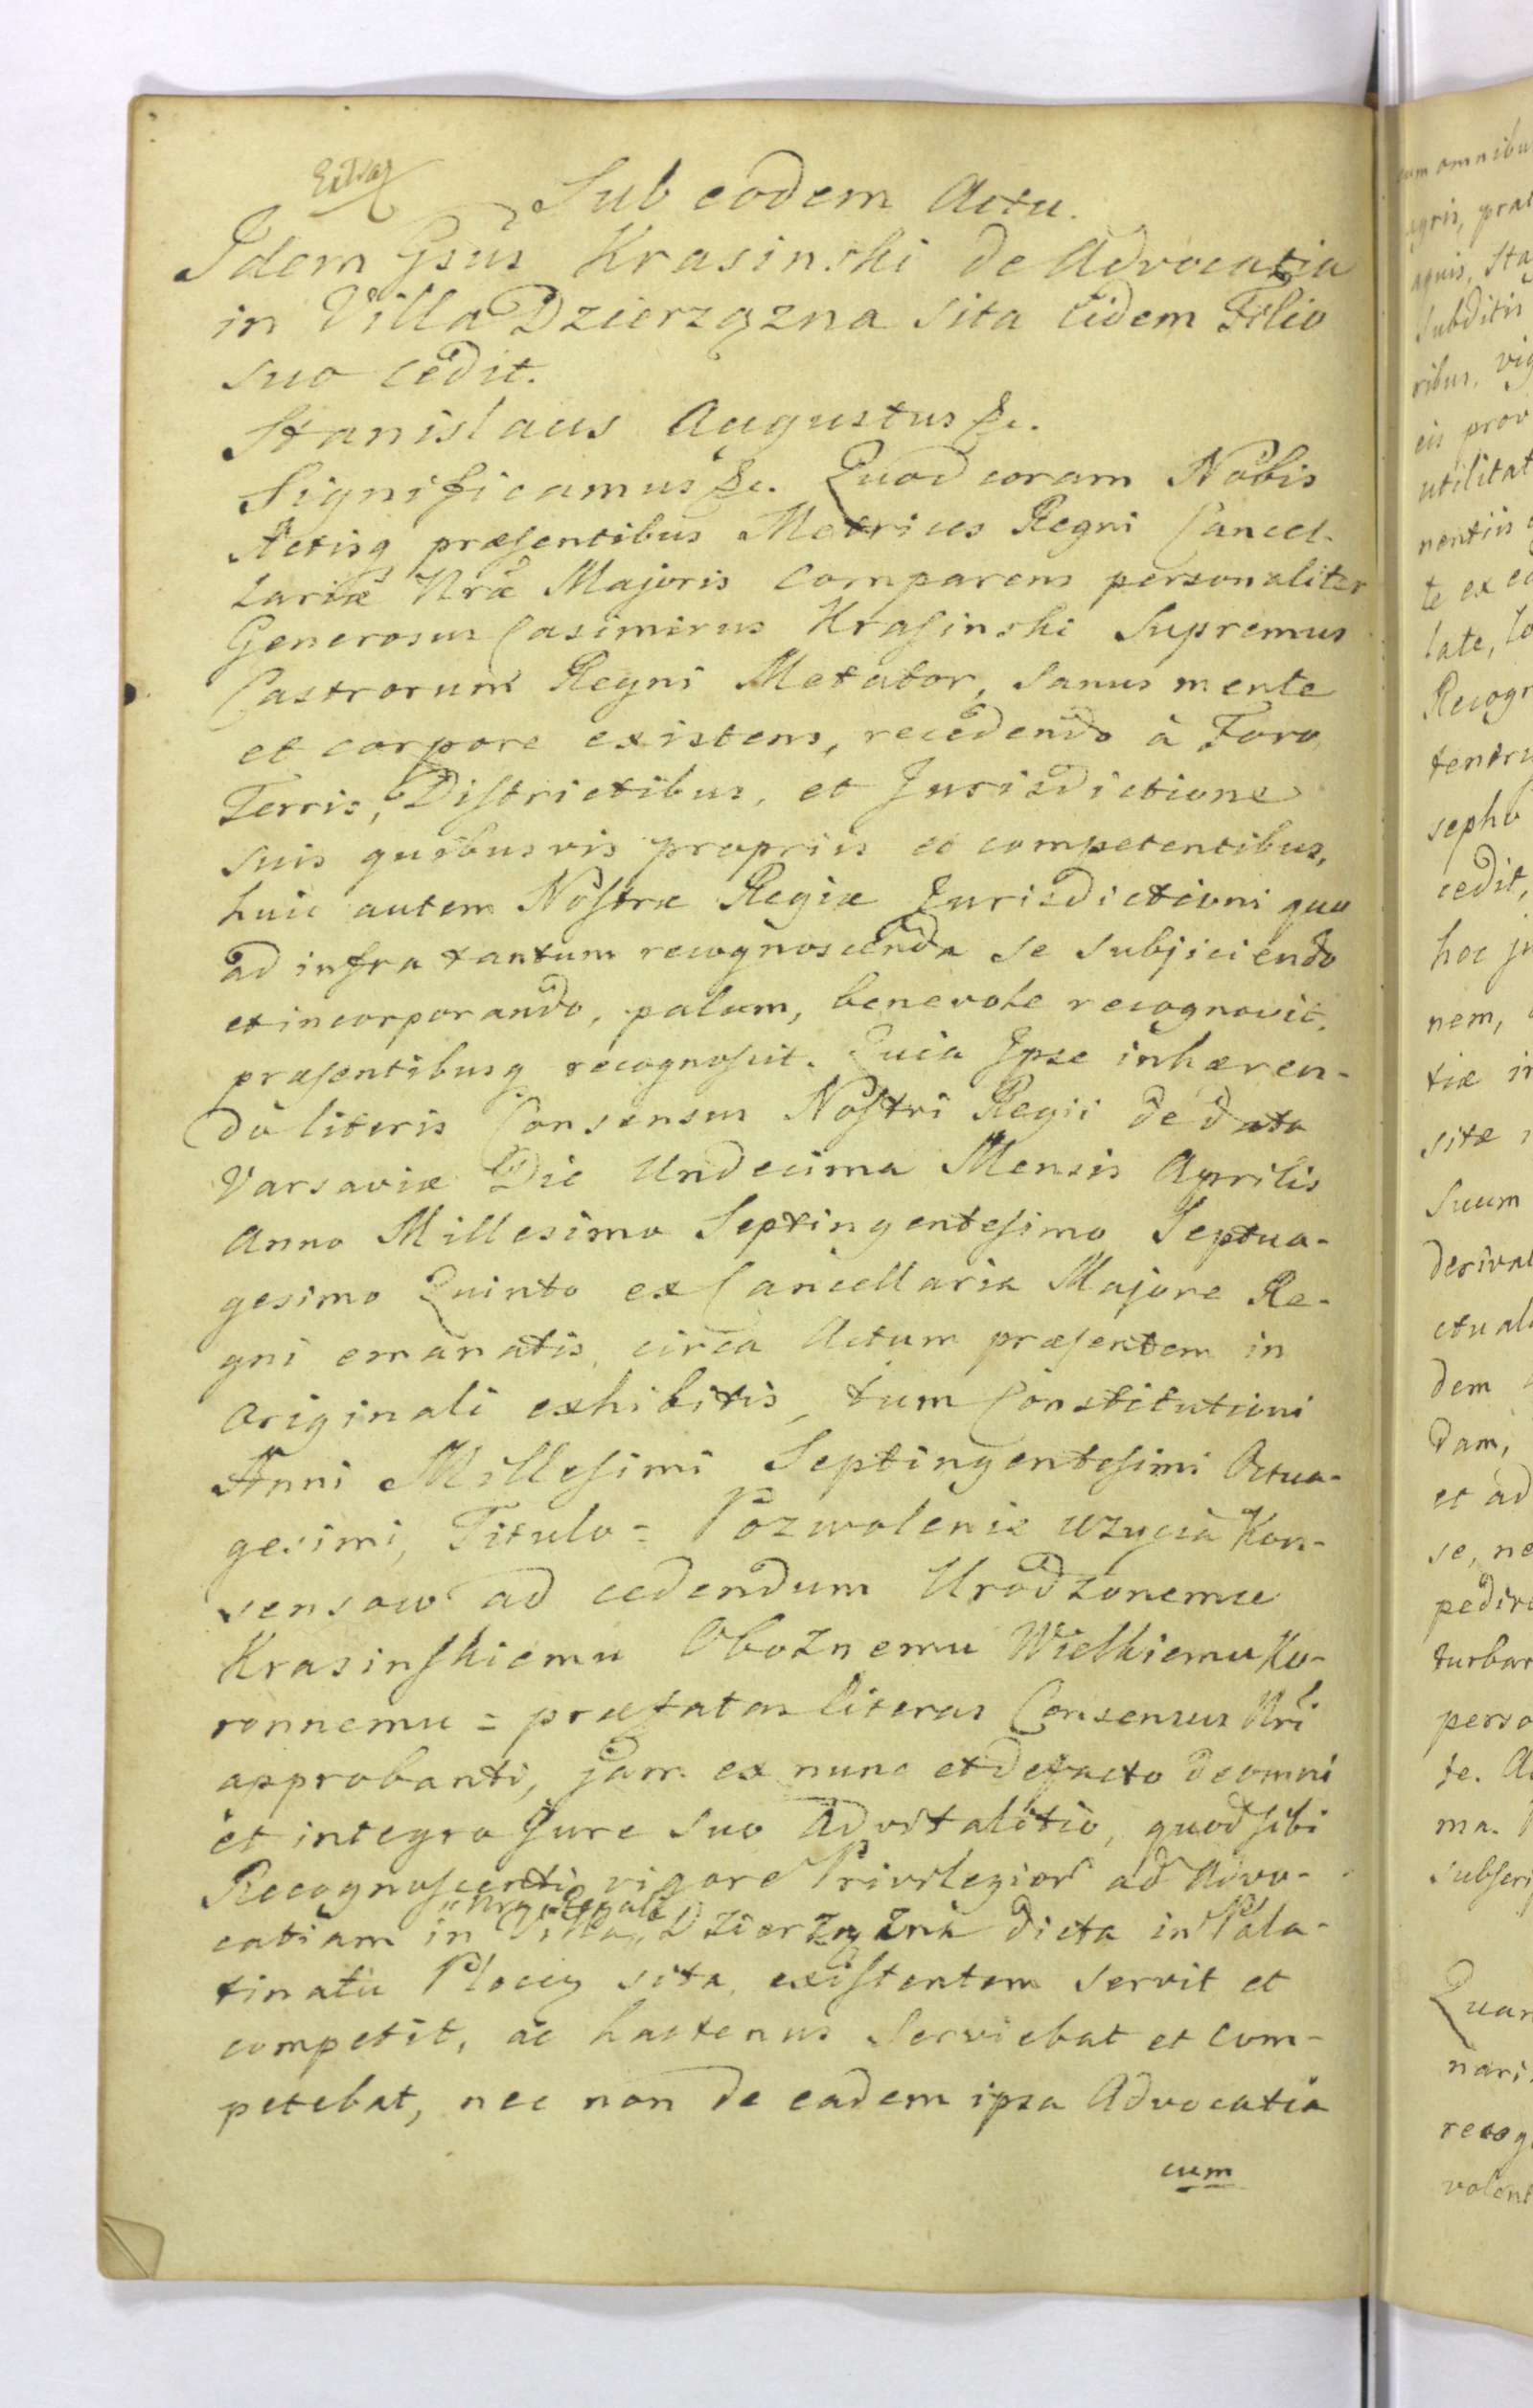 Sub eodem Actu.
Idem Gsus Krasinski de Advocatia
in Villa Dzierząźna sita Eidem Filio
suo cedit.
Stanislaus Augustus &c.
Significamus &c. Quod coram Nobis
Actisq præsentibus Metrices Regni Cancel-
lariæ Nræ Majoris comparens personaliter
Generosus Casimirus Krasinski Supremus
Castrorum Regni Metator, sanus mente
et corpore existens, recedendo à Foro
Terris, Districtibus, et Jurisdictione
suis quibusvis propriis et competentibus,
huic autem Nostræ Regiæ Jurisdictioni quo
ad infra tantum recognoscenda se subjiciendo
et incorporando, palam, benevole recognovit,
præsentibusq recognoscit. Quia Ipse inhæren-
do literis Consensus Nostri Regii de data
Varsaviæ Die Undecima Mensis Aprilis
Anno Millesimo Septingentesimo Septua-
gesimo Quinto ex Cancellaria Majore Re-
gni emanatis, circa Actum præsentem in
originali exhibitis, tum Constitutioni
Anni Millesimi Septingentesimi Octua-
gesimi, Titulo = Pozwolenie uzycia Kon-
sensow ad cedendum Urodzonemu
Krasinskiemu Oboznemu Wielkiemu Ko-
ronnemu = præfatas literas Consensus Nri
approbanti, jam ex nunc et de facto de omni
et integro Jure suo Advitalitio, quod sibi
Recognoscenti vigore Privilegior ad Advo-
catiam in Villa Nra Regali Dzierzązna dicta in Pala-
tinatu Plocen sita, existentem servit et
competit, ac hactenus serviebat et com-
petebat, nec non de eadem ipsa Advocatia
cum
um omnibu
agris, prat
aquis, Sta
Subditis
ribus, vig
eis prov
utilitat
nentiis
te ex eo
late, to
Recogn
tentru
sepho
cedit,
hoc ju
nem,
tiæ in
sitæ
Suum
derivat
ctuali
dem
dam,
et ad
se, ne
pedire
turbar
perso
te. A
ma.
subscri
Quan
nari
recog
volent